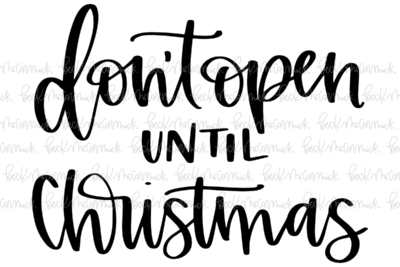 don't open
UNTIL
Christmas